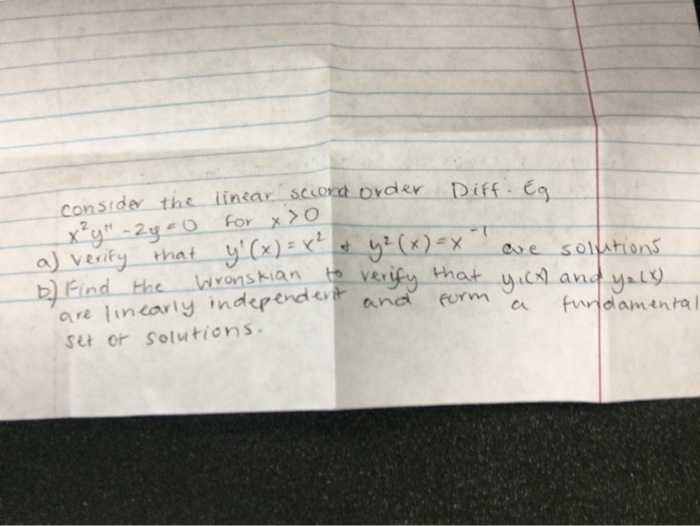 consider the linear second order Diff. Eq
x²y" - 2y = 0 for x > 0
a) verify that y'(x) = x² & y²(x) = x⁻¹ are solutions
b) Find the Wronskian to verify that y₁(x) and y₂(x)
are linearly independent and form a fundamental
set of solutions.